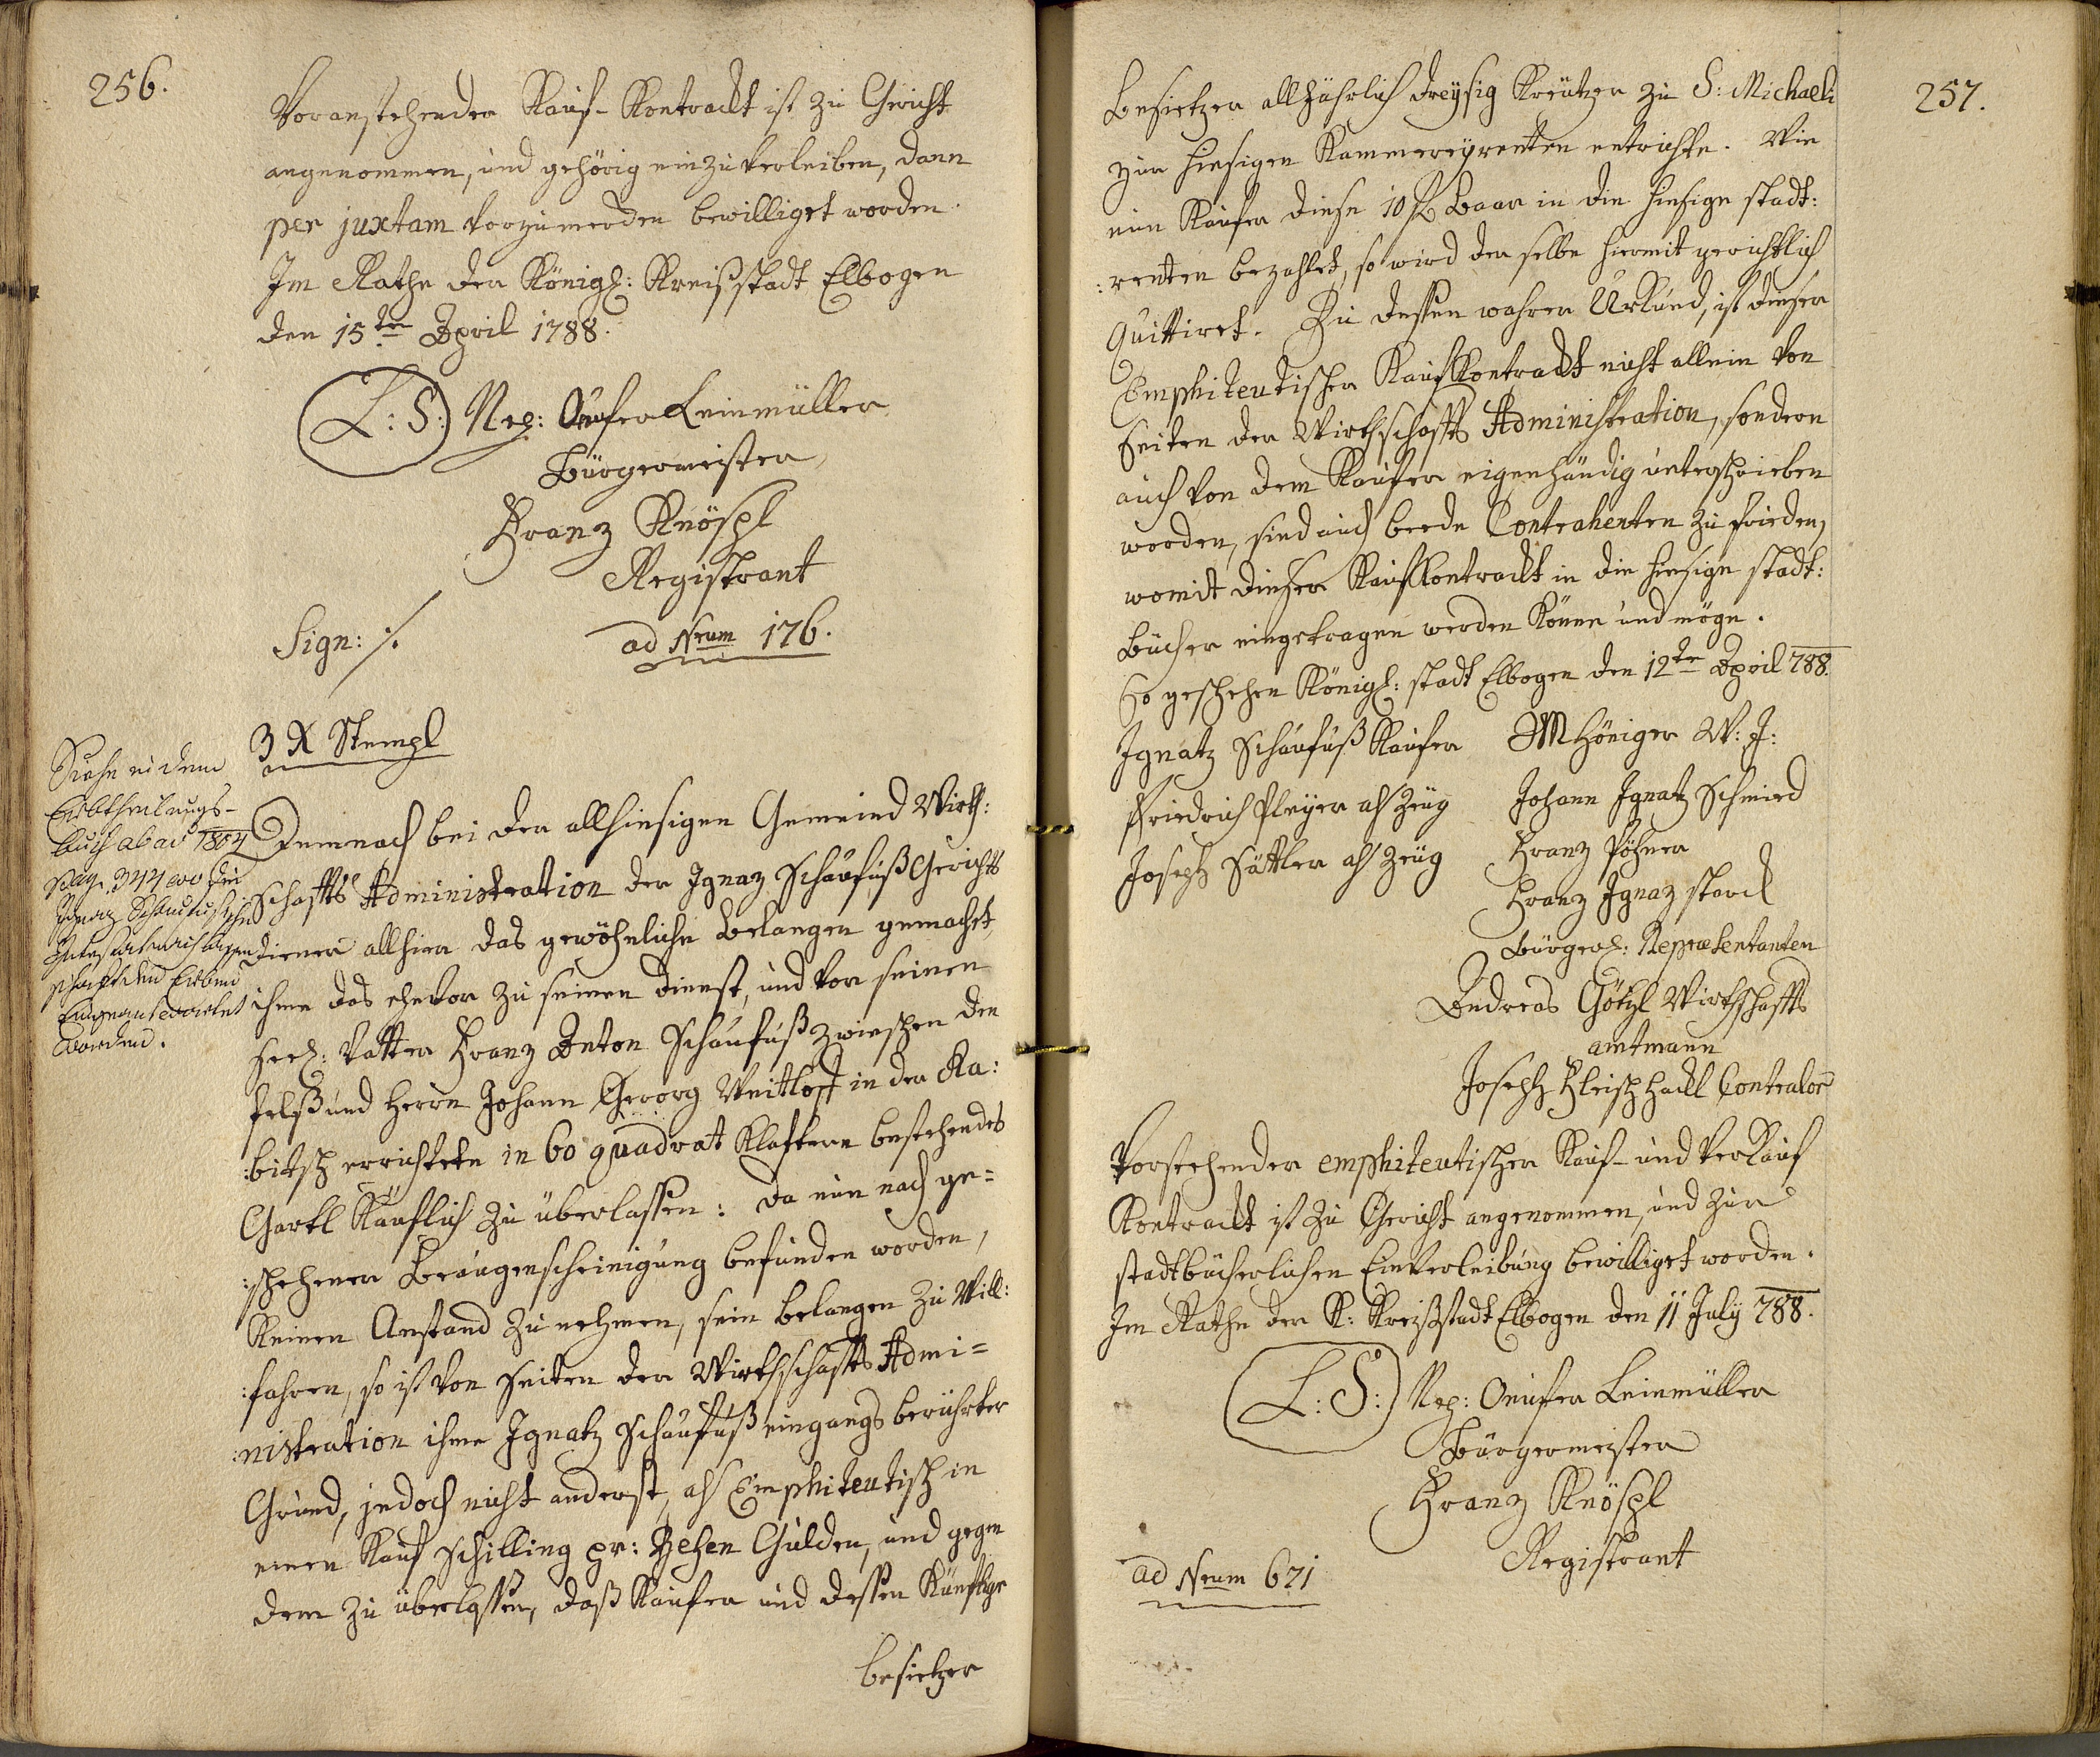 256.
Voranstehender Kauf-Kontrackt ist zu Gericht
angenommen, und gehörig einzuverleiben, dann
per juxtam vorzumerken bewilliget worden.
Im Rathe der Königl: Kreißstadt Elbogen
den 15ten April 1788.
L: S: Nep: Onufer Leinmüller
Bürgermeister
Franz Knöspl
Registrant
Sign: ·/.
ad Nrum 176.
3 X Stempl
Siehe in dem
Erbtheilungs-
buch ab aō 1804
pag. 344 wo die
Ignaz Schaufußische
Verlassenschaft
den Erben
Eingeantwortet
worden.
Demnach bei der allhiesigen Gemeind Wirth:
schaffts Administration der Ignaz Schaufuß Gerichts
diener allhier das gewöhnliche belangen gemacht,
ihme das ehevor zu seinen dienst, und von seinen
Seel: Vatter Franz Anton Schaufuß zwieschen den
felß und Herrn Johann Georg Weitlost in der Ka:
:bitsch errichtete in 60 quadrat Klaftern bestehendes
Gartl Käuflich zu überlassen: da nun nach ge=
:schehener Beaugenscheinigung befunden worden,
Keinen Anstand zu nehmen, sein belangen zu Will:
:fahren, so ist von seiten der Wirthschaffts Admi=
:nistration ihme Ignatz Schaufuß eingangs berührter
Grund, jedoch nicht anderst, als Emphiteutisch in
einen Kauf Schilling pr: Zehen Gulden, und gegen
dem zu überlassen, daß Kaufer und dessen Künftige
besietzer
257.
Besietzer allJährlich dreysig Kreutzer zu S: Michaeli
zur hiesigen Kammereyrenten entrichte. Wie
nun Kaufer diese 10 f Baar in die hiesige stadt:
:renten bezahlet, so wird der selbe hiermit gerichtlich
Quittiret. Zu dessen wahrer Urkund, ist dieser
Emphiteutischer Kaufkontrackt nicht allein von
seiten der Wirthschaffts Administration, sondern
auch von dem Kaufer eigenhändig unterschrieben
worden, sind auch beede Contrahenten zu frieden,
womit dieser Kaufkontrackt in die hiesige stadt:
Bücher eingetragen werden Könne und möge.
So geschehen Königl: stadt Elbogen den 12ten April 788.
Ignatz Schaufuß Kaufer
MHöniger W: J:
Friedrich Pleyer als Zeug
Johann Ignatz Schmied
Joseph Sattler als Zeug
Franz Pöhner
Franz Ignaz Storck
Bürgerl: Repræsentanten
Andreas Götzl Wirthschaffts
amtmann
Joseph Fleischhackl Contralor
Vorstehender emphiteutischer Kauf- und Verkauf
Kontrackt ist zu Gericht angenommen, und zur
stadtbücherlichen Einverleibung bewilliget worden.
Im Rathe der K: Kreißstadt Elbogen den 11 July 788.
L: S: Nep: Onufer Leinmüller
Bürgermeister
Franz Knöspl
Registrant
ad Nrum 671